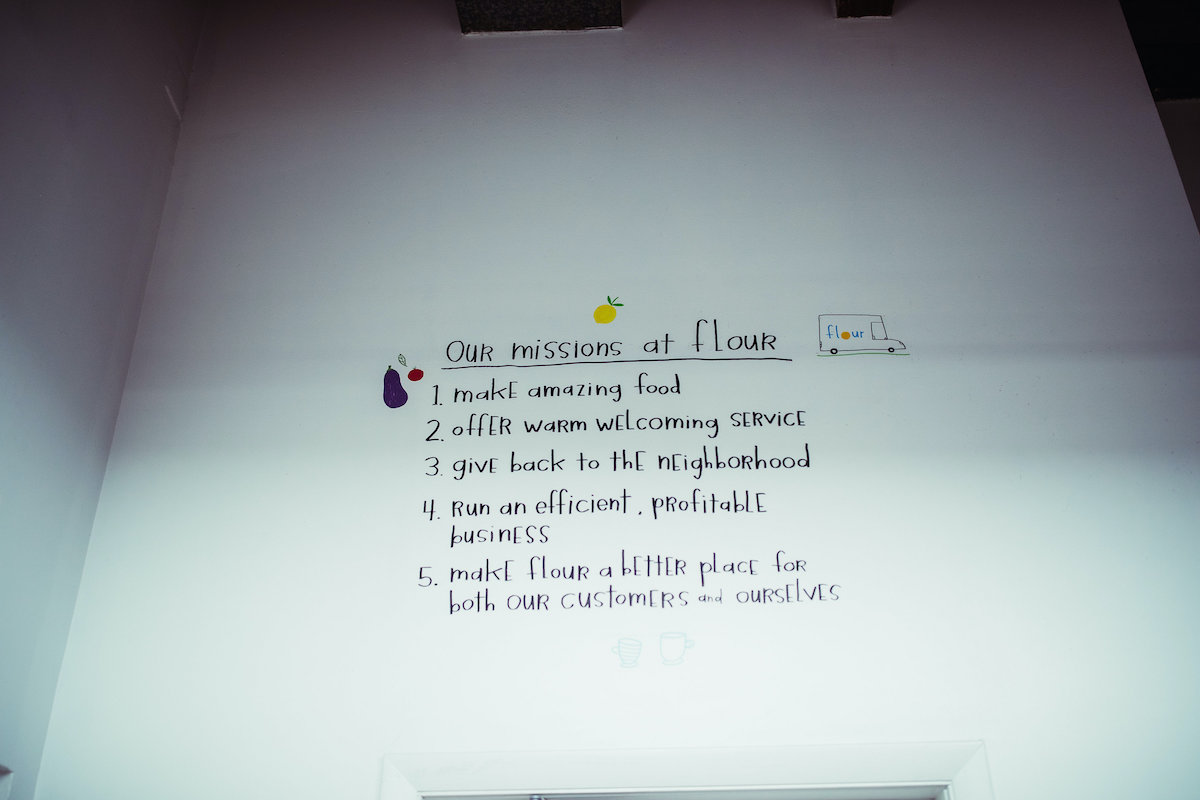 our missions at flour
flour
1. make amazing food
2. offer warm welcoming service
3. give back to the neighborhood
4. Run an efficient, profitable
business
5. make flour a better place for
both our customers and ourselves